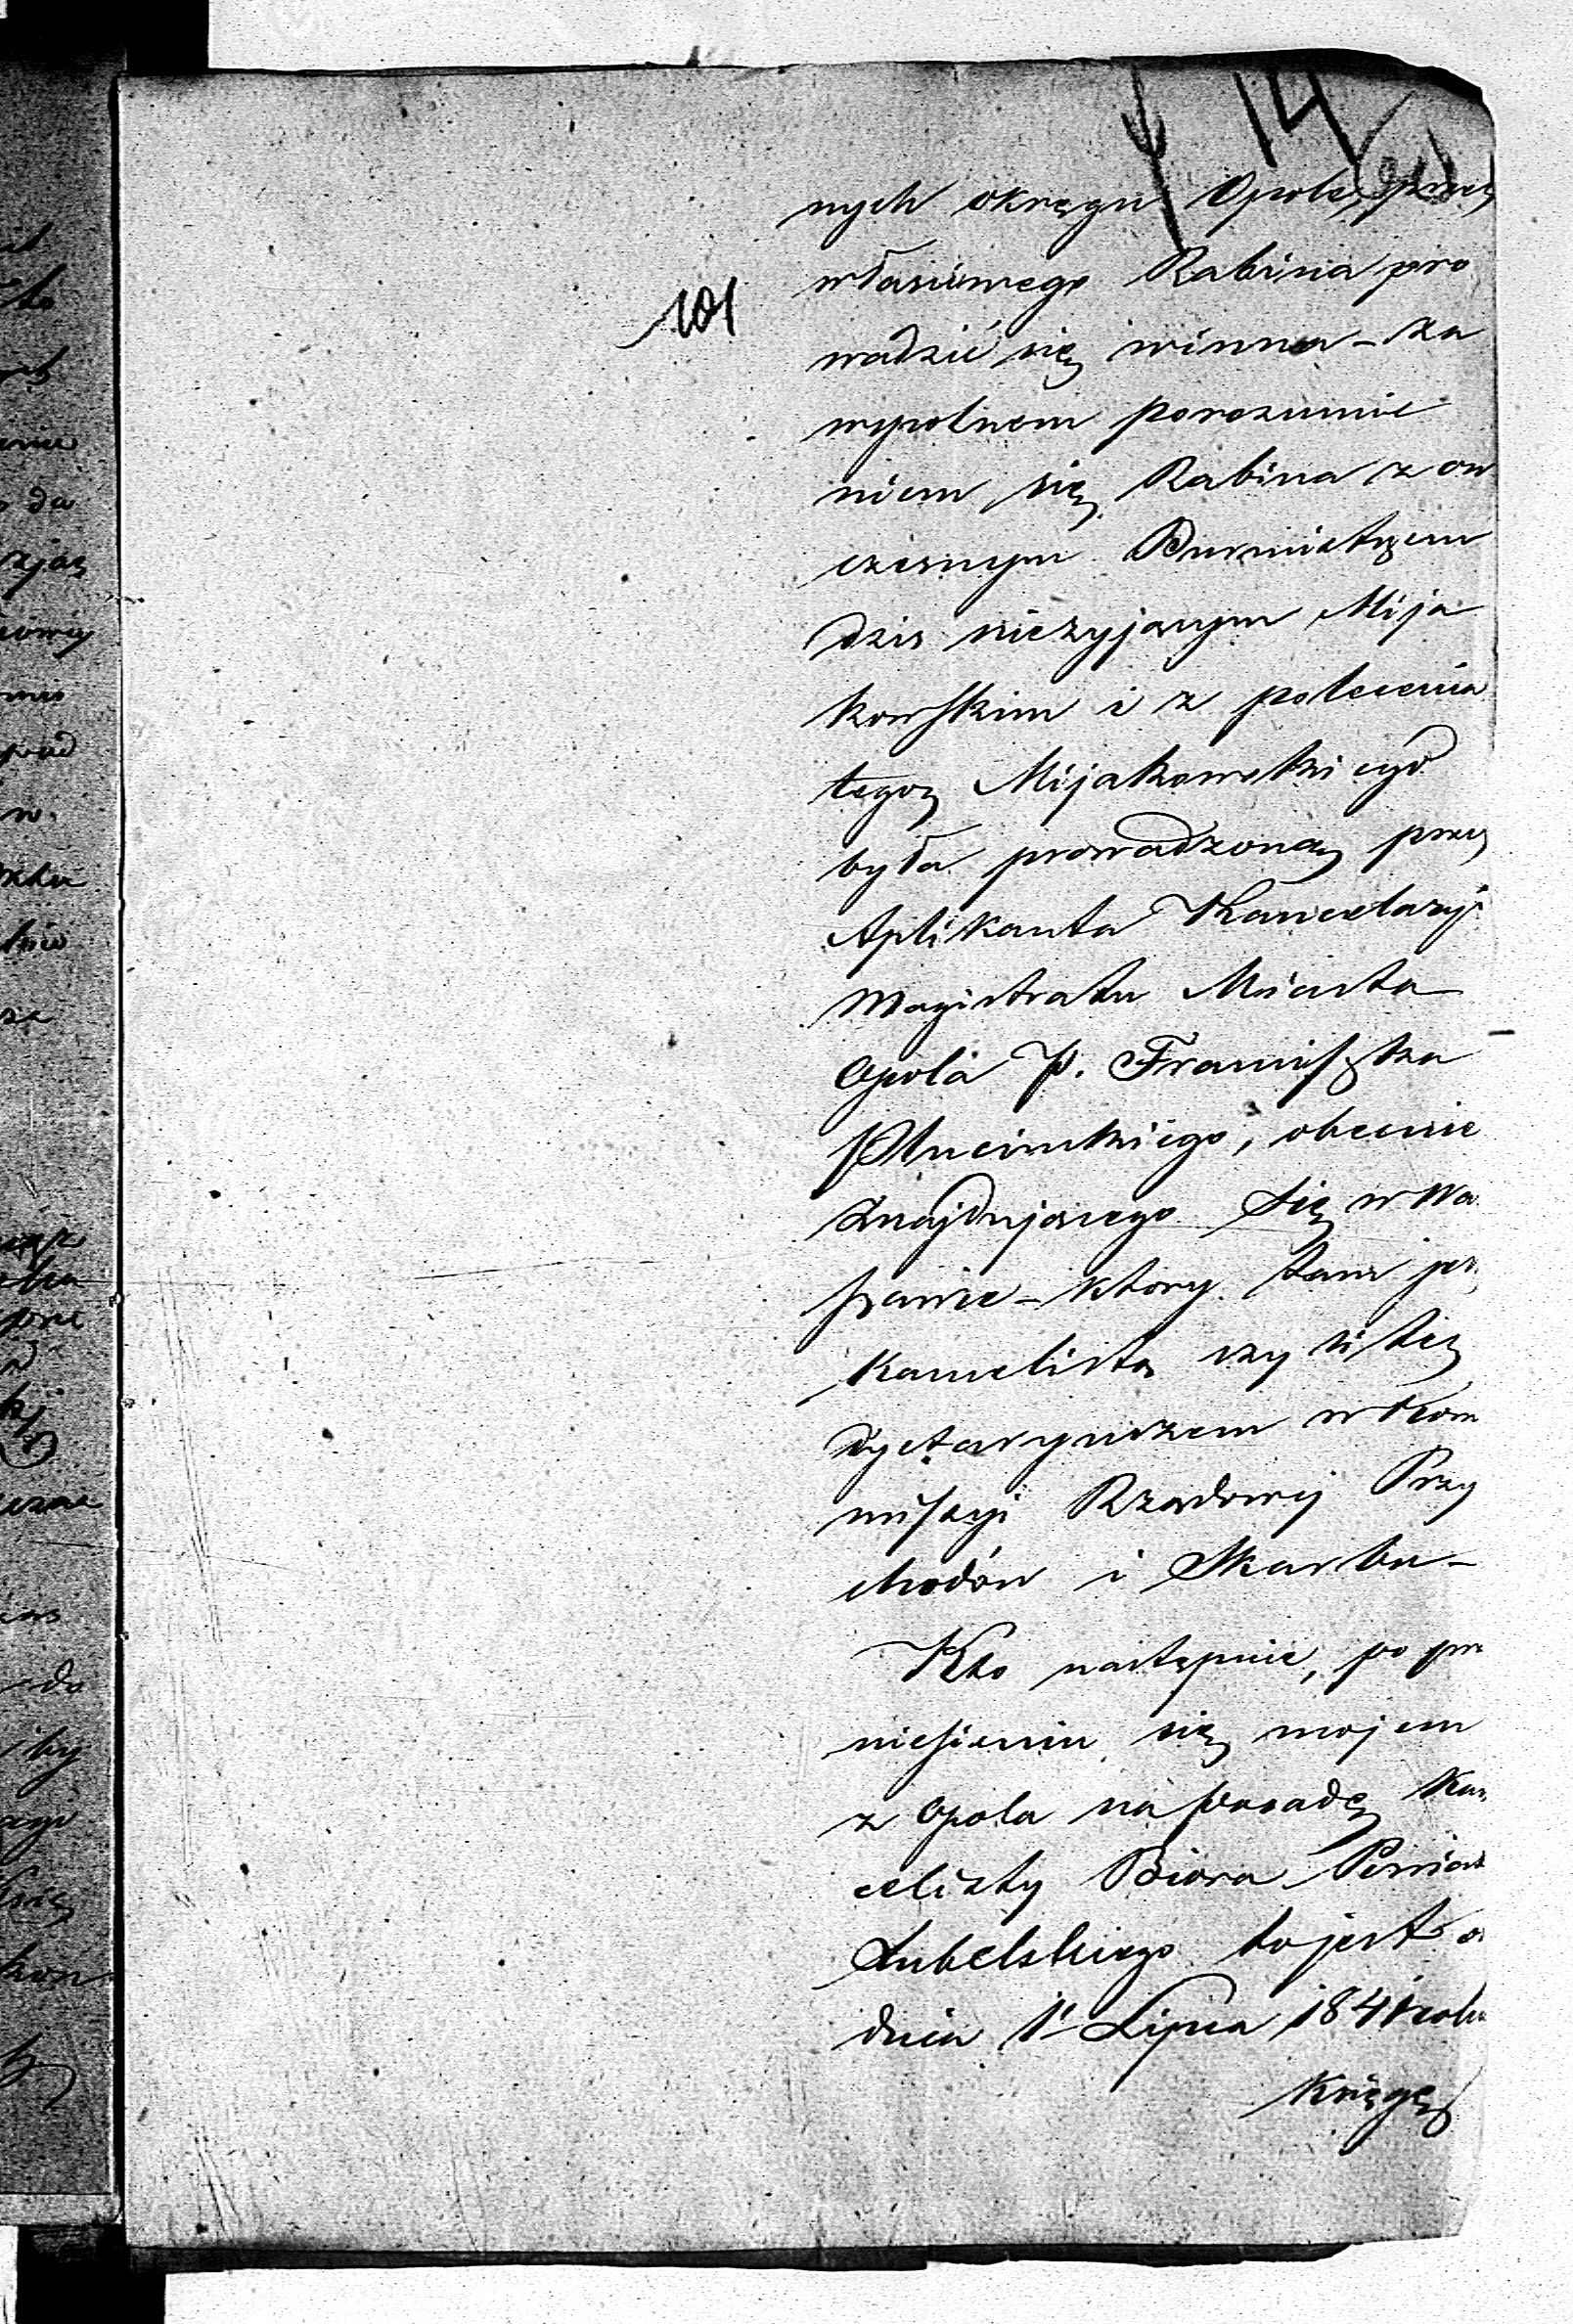 14
nych okręgu Opole, przez
właściwego Rabina pro
101
wadzić się winna – za
wspolnem porozumie
niem się Rabina z ów
czesnym Burmistrzem
dziś nieżyjącym Mija
kowskim i z polecenia
tegoż Mijakowskiego
była prowadzoną przez
Aplikanta Kancelaryi
Magistratu Miasta
Opola P. Franciszka
Plucinskiego, obecnie
znajdującego się w Wa
szawie – ktory tam jes
Kancelistą czy li też
dyetaryuszem w Kom
missyi Rządowej Przy
chodów i Skarbu –
Kto następnie, po prze
niesieniu się mojem
z Opola na posadę Kan
celisty Biora Powiat
Lubelskiego to jest o
dnia 1º Lipca 1841 roku
Księgę